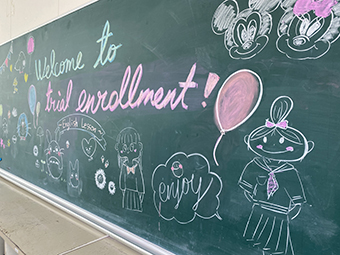 Welcome to
trial enrollment!
English Lesson
enjoy